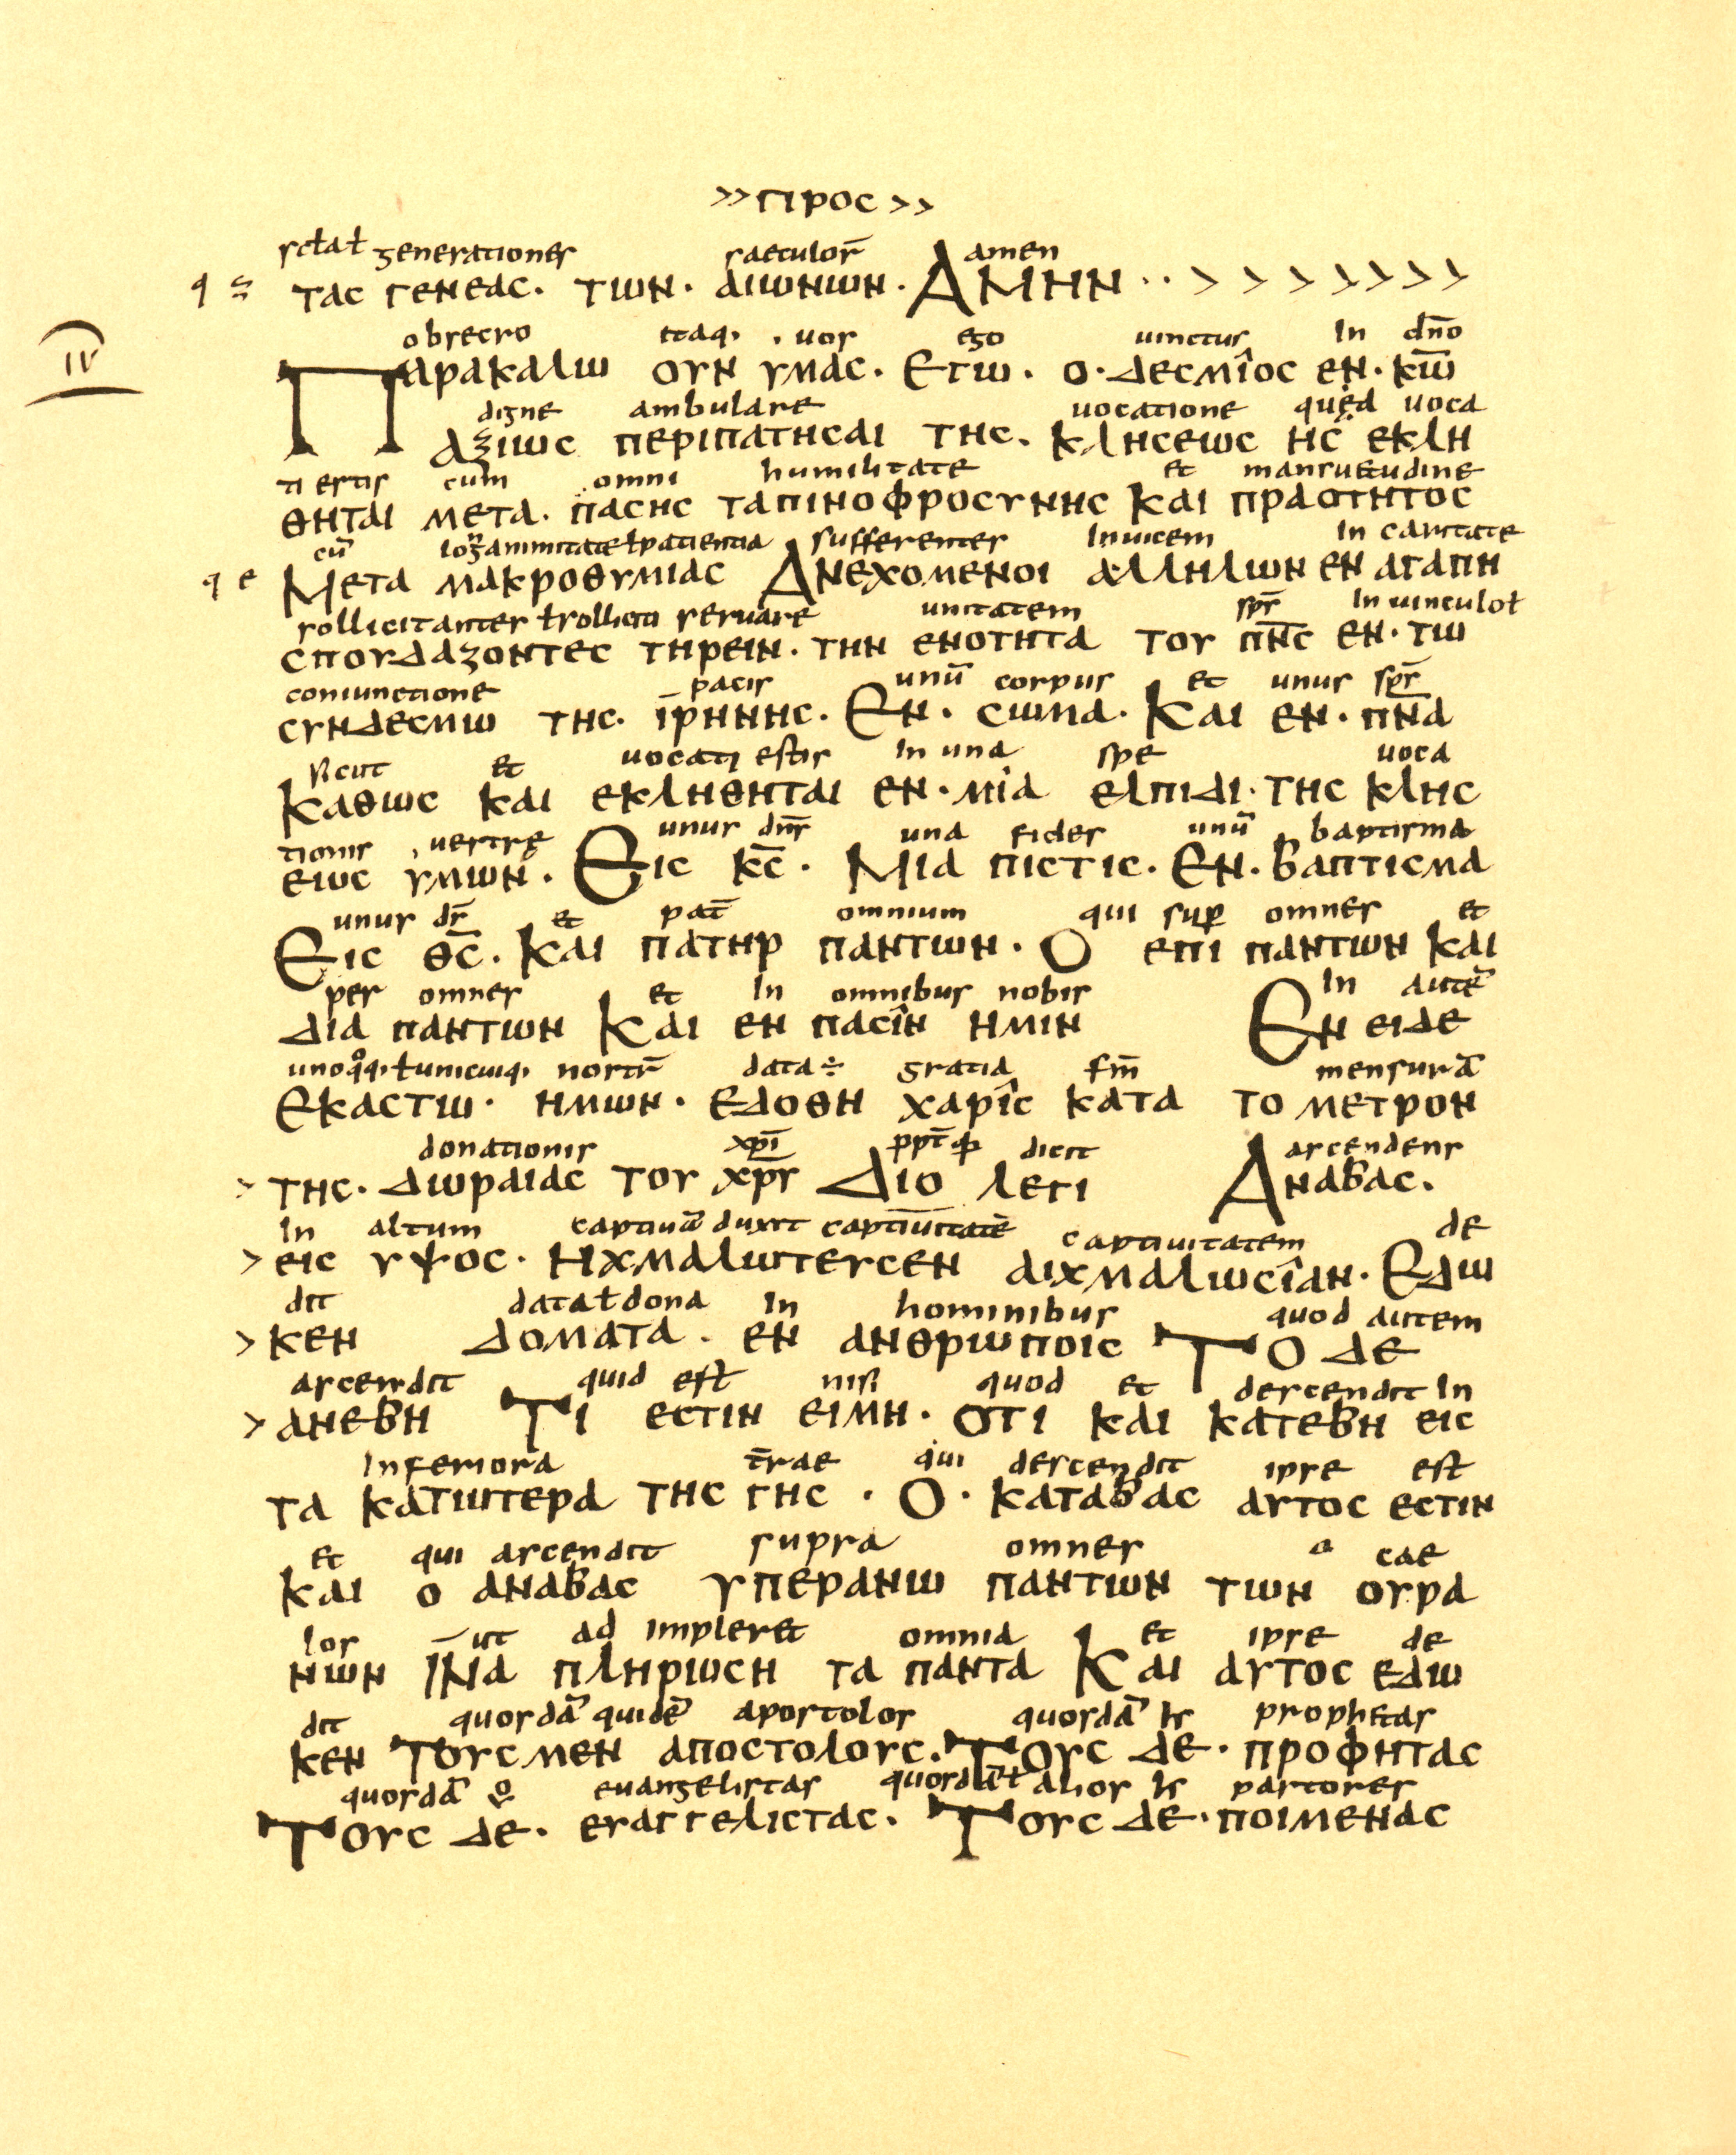 >> ΠΡΟC >>
sctał generationes saeculor̄ amen
ϥ ϛ ΤΑC ΓΕΝΕΑC· ΤΩΝ· ΑΙΩΝΩΝ· ΑΜΗΝ ·· > > > > > > >
obsecro itaq· uos ego uinctus In dn̄o
IV ΠΑΡΑΚΑΛΩ ΟΥΝ ΥΜΑC· ΕΓΩ· Ο· ΔΕCΜΙΟC ΕΝ· Κ̅Ω̅
digne ambulare uocatione quęd uoca
ΑΞΙΩC ΠΕΡΙΠΑΤΗCΑΙ ΤΗC· ΚΛΗCΕΩC ΗC ΕΚΛΗ
ti estis cum omni humilitate et mansuetudine
ΘΗΤΑΙ ΜΕΤΑ· ΠΑCΗC ΤΑΠΙΝΟΦΡΟCΥΝΗC ΚΑΙ ΠΡΑΟΤΗΤΟC
cū longanimitate ł patientia sufferentes Inuicem In caritate
ϥ ε ΜΕΤΑ ΜΑΚΡΟΘΥΜΙΑC ΑΝΕΧΟΜΕΝΟΙ ΑΛΛΗΛΩΝ ΕΝ ΑΓΑΠΗ
sollicitanter ł solliciti seruare unitatem sp̄s In uinculo ł
CΠΟΥΔΑΖΟΝΤΕC ΤΗΡΕΙΝ· ΤΗΝ ΕΝΟΤΗΤΑ ΤΟΥ Π̅Ν̅C̅ ΕΝ· ΤΩ
coniunctione pacis unū corpus et unus sp̄s
CΥΝΔΕCΜΩ ΤΗC· ΙΡΗΝΗC· ΕΝ· CΩΜΑ· ΚΑΙ ΕΝ· Π̅Ν̅Α̅
sicut et uocati estis In una spe uoca
ΚΑΘΩC ΚΑΙ ΕΚΛΗΘΗΤΑΙ ΕΝ· ΜΙΑ ΕΛΠΙΔΙ· ΤΗC ΚΛΗC
tionis uestrę unus dn̄s una fides unū baptisma
ΕΩC ΥΜΩΝ· ΕΙC Κ̅C̅· ΜΙΑ ΠΙCΤΙC· ΕΝ· ΒΑΠΤΙCΜΑ
unus ds̄ et pat̄ omnium qui sup omnes et
ΕΙC Θ̅C̅· ΚΑΙ ΠΑΤΗΡ ΠΑΝΤΩΝ· Ο ΕΠΙ ΠΑΝΤΩΝ ΚΑΙ
per omnes et In omnibus nobis In autē
ΔΙΑ ΠΑΝΤΩΝ ΚΑΙ ΕΝ ΠΑCΙΝ ΗΜΙΝ ΕΝ ΕΙΔΕ
unoqq· ł unicuiq· nostr̄ data÷ gratia sm̄ mensurā
ΕΚΑCΤΩ· ΗΜΩΝ· ΕΔΟΘΗ ΧΑΡΙC ΚΑΤΑ ΤΟ ΜΕΤΡΟΝ
donationis xp̄i ppt̄ qꝉ dicit ascendens
> ΤΗC· ΔΩΡΑΙΑC ΤΟΥ Χ̅Ρ̅Υ̅ ΔΙΟ ΛΕΓΙ ΑΝΑΒΑC·
In altum captiuā duxit captiuitatē captiuitatem de
> ΕΙC ΥΨΟC· ΗΧΜΑΛΩΤΕΥCΕΝ ΑΙΧΜΑΛΩCΙΑΝ· ΕΔΩ
dit data ł dona In hominibus quod autem
> ΚΕΝ ΔΟΜΑΤΑ· ΕΝ ΑΝΘΡΩΠΟΙC ΤΟ ΔΕ
ascendit quid est nisi quod et descendit In
> ΑΝΕΒΗ ΤΙ ΕCΤΙΝ ΕΙΜΗ· ΟΤΙ ΚΑΙ ΚΑΤΕΒΗ ΕΙC
Inferiora t̄rae qui descendit ipse est
ΤΑ ΚΑΤΩΤΕΡΑ ΤΗC ΓΗC· Ο· ΚΑΤΑΒΑC ΑΥΤΟC ΕCΤΙΝ
et qui ascendit supra omnes a cae
ΚΑΙ Ο ΑΝΑΒΑC ΥΠΕΡΑΝΩ ΠΑΝΤΩΝ ΤΩΝ ΟΥΡΑ
los ut ad impleret omnia et ipse de
ΝΩΝ ΙΝΑ ΠΛΗΡΩCΗ ΤΑ ΠΑΝΤΑ ΚΑΙ ΑΥΤΟC ΕΔΩ
dit quosdā quidē apostolos quosdā hs prophetas
ΚΕΝ ΤΟΥCΜΕΝ ΑΠΟCΤΟΛΟΥC· ΤΟΥC ΔΕ· ΠΡΟΦΗΤΑC
quosdā euangelistas quosdā ł alios hs pastores
ΤΟΥC ΔΕ· ΕΥΑΓΓΕΛΙCΤΑC· ΤΟΥC ΔΕ· ΠΟΙΜΕΝΑC